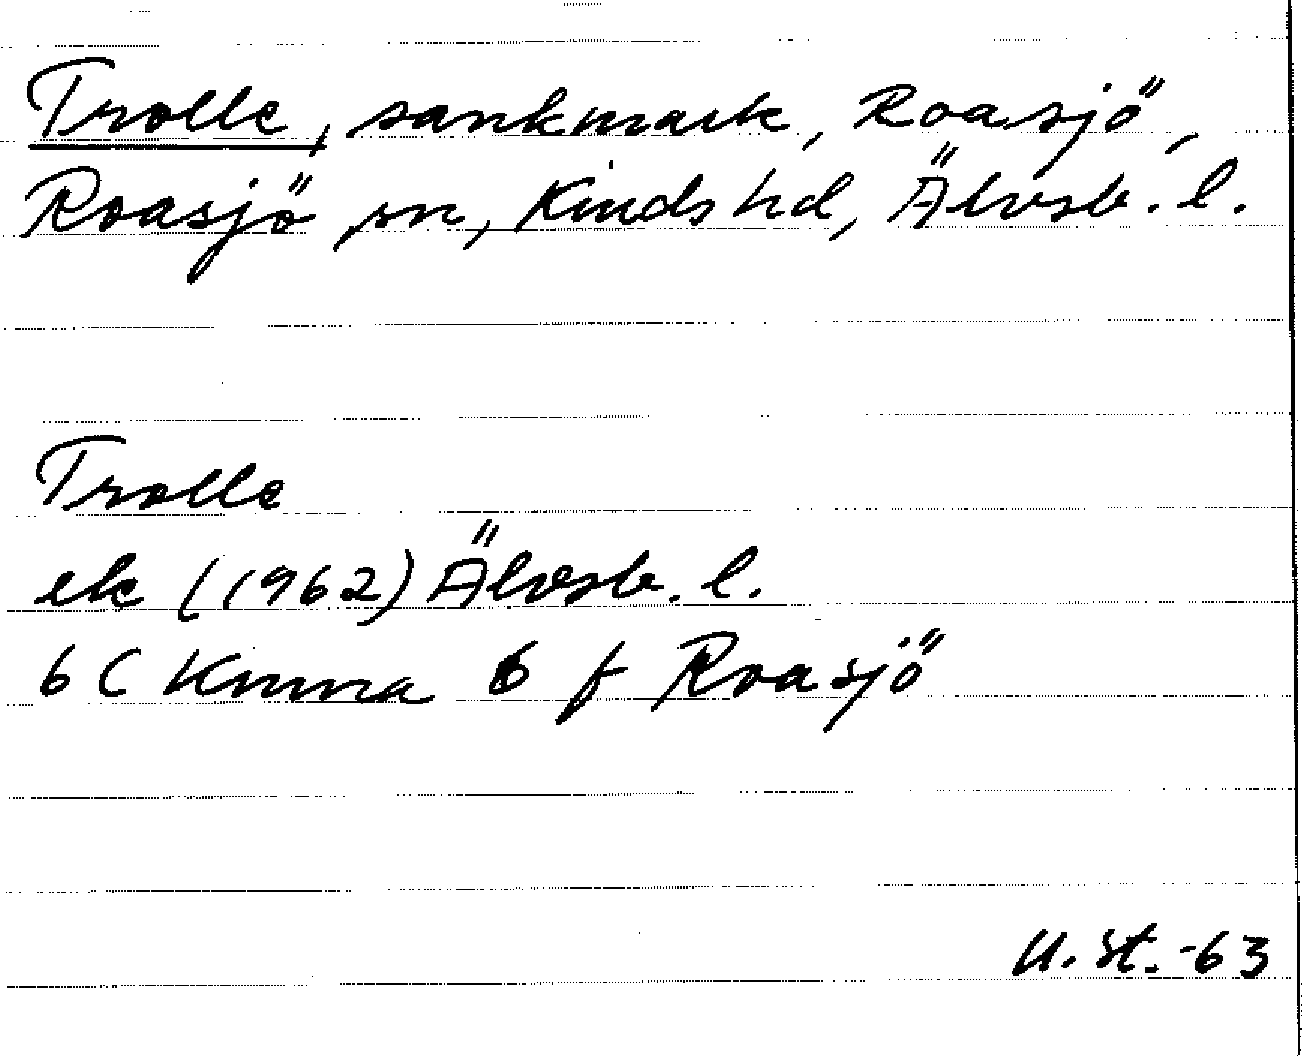 Trolle, sankmark, Roasjö,
Roasjö sn, Kinds hd, Älvsb. l.
Trolle
ek (1962) Älvsb. l.
6 C Kinna 6 f Roasjö
U. St. -63